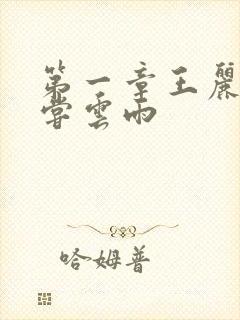 第一章王麗
嘗雲雨
哈姆普